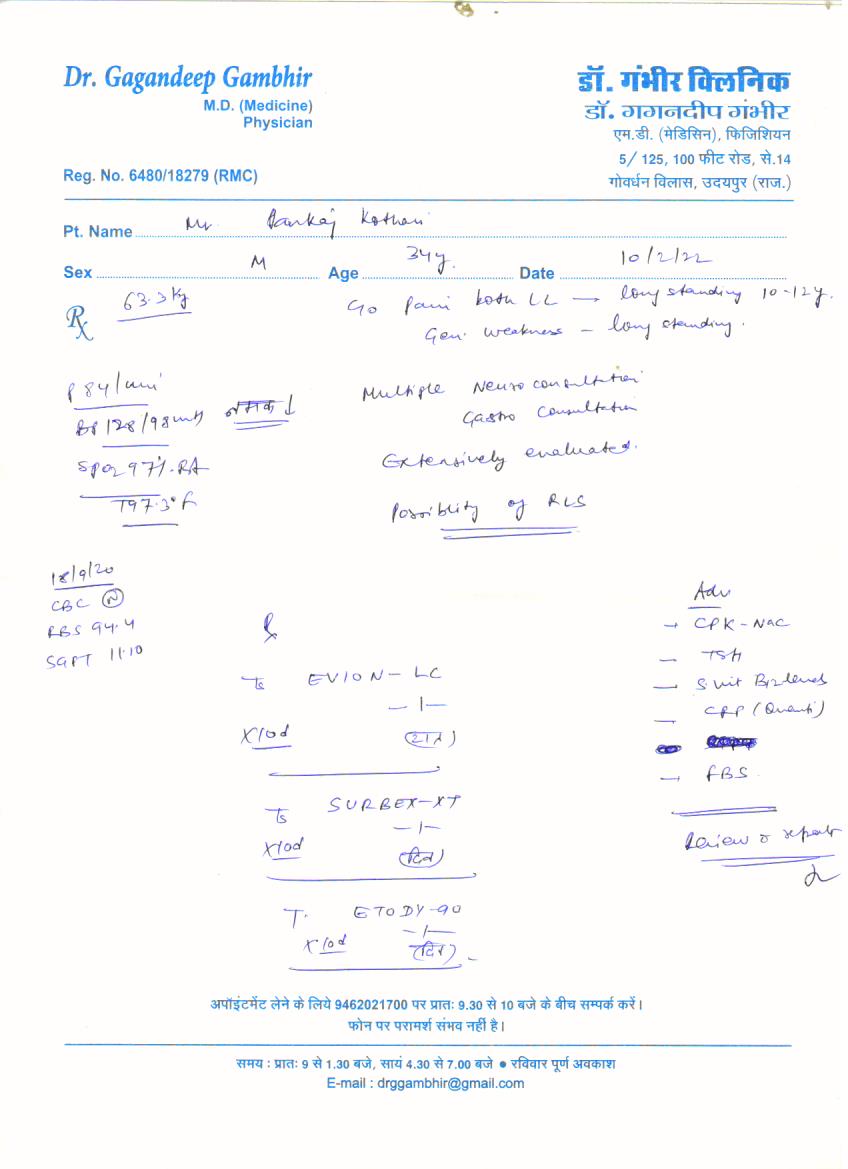 Dr. Gagandeep Gambhir
M.D. (Medicine)
Physician
Reg. No. 6480/18279 (RMC)
डॉ. गंभीर क्लिनिक
डॉ. गगनदीप गंभीर
एम.डी. (मेडिसिन), फिजिशियन
5/ 125, 100 फीट रोड, से.14
गोवर्धन विलास, उदयपुर (राज.)
Pt. Name Mr. Pankaj Kothari
Sex M Age 34y. Date 10/2/22
63.3 Kg
C/o Pain both LL — long standing 10-12y.
Gen. weakness - long standing.
P 84/min
BP 128/98 नमक ↓
SpO2 97%. RA
T97.3°F
Multiple Neuro consultation
Gastro Consultation
Extensively evaluated.
Possiblity of RLS
18/9/20
CBC N
RBS 94.4
SGPT 11.10
Rx
EVION-LC
— 1 —
X10d (रात)
SURBEX-XT
— 1 —
X10d (दिन)
T. ETODY-90
— 1 —
X10d (दिन)
Adv
→ CPK-NAC
— TSH
— S. Vit B12 levels
— CRP (Quanti)
→ FBS
Review c reports
अपॉइंटमेंट लेने के लिये 9462021700 पर प्रातः 9.30 से 10 बजे के बीच सम्पर्क करें।
फोन पर परामर्श संभव नहीं है।
समय : प्रातः 9 से 1.30 बजे, सायं 4.30 से 7.00 बजे ● रविवार पूर्ण अवकाश
E-mail : drggambhir@gmail.com